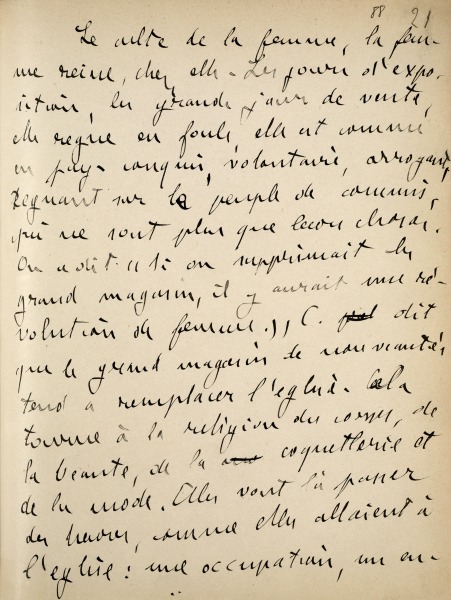 88 21
Le culte de la femme, la fem-
me reine, chez elle - Les jours d'expo-
sition, les grands jours de vente,
elle regne en foule, elle est comme
en pays conquis, volontaire, arrogante,
regnant sur le peuple de commis,
qui ne sont plus que leurs choses.
On a dit: si on supprimait les
grand magasin, il y aurait une ré-
volution de femme. ,, C. dit
que le grand magasin de nouveautés
tend a remplacer l'eglise. Cela
tourne à la religion du corps, de
la beaute, de la coquetterie et
de la mode. Elles vont là passer
des heures, comme elles allaient à
l'eglise: une occupation, un en-